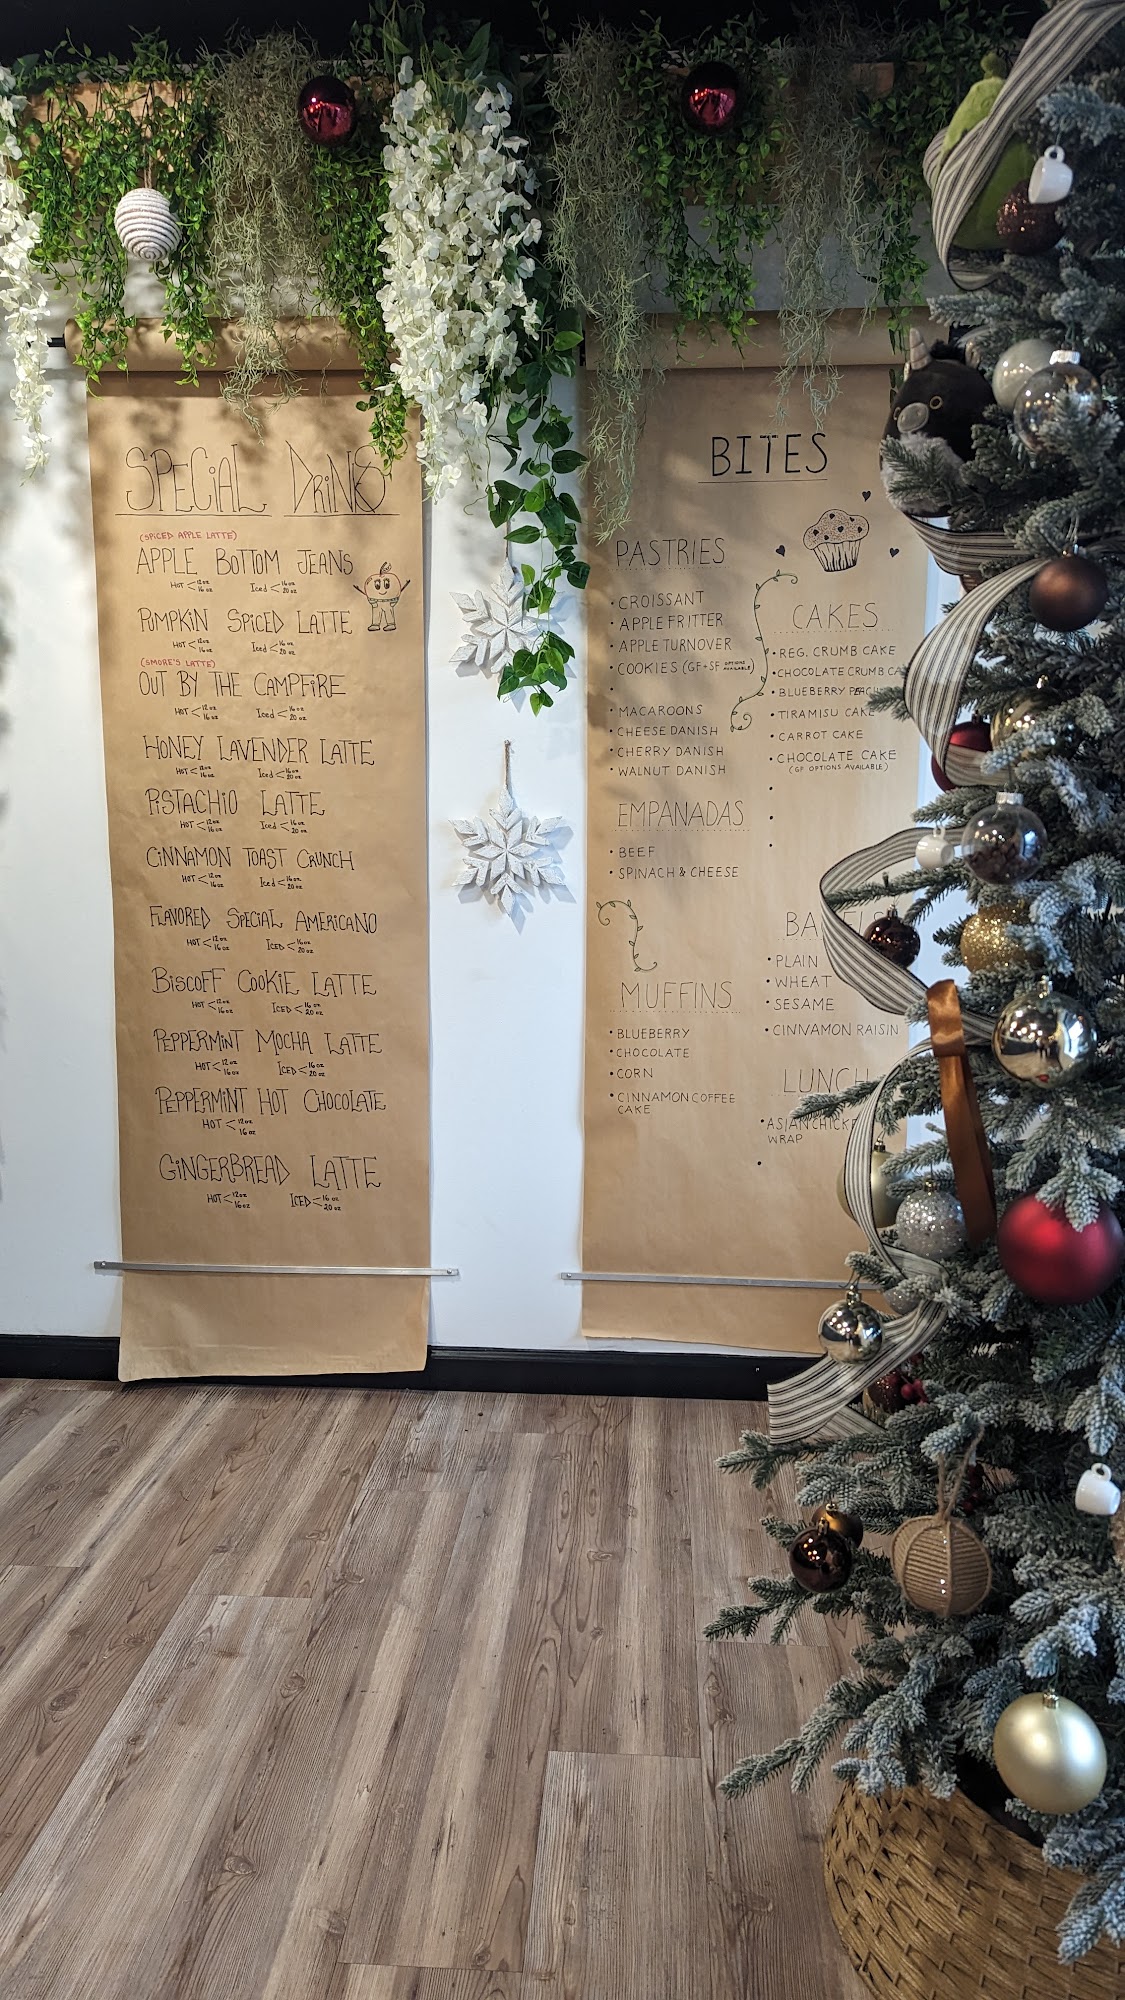 SPECIAL DRINKS
(SPICED APPLE LATTE)
APPLE BOTTOM JEANS
HOT < 12oz 16oz Iced < 16oz 20oz
PUMPKIN SPICED LATTE
HOT < 12oz 16oz Iced < 16oz 20oz
(SMORE'S LATTE)
OUT BY THE CAMPFIRE
HOT < 12oz 16oz Iced < 16oz 20oz
HONEY LAVENDER LATTE
HOT < 12oz 16oz Iced < 16oz 20oz
PISTACHIO LATTE
HOT < 12oz 16oz Iced < 16oz 20oz
CINNAMON TOAST CRUNCH
HOT < 12oz 16oz Iced < 16oz 20oz
FLAVORED SPECIAL AMERICANO
HOT < 12oz 16oz ICED < 16oz 20oz
BISCOFF COOKIE LATTE
HOT < 12oz 16oz ICED < 16oz 20oz
PEPPERMINT MOCHA LATTE
HOT < 12oz 16oz ICED < 16oz 20oz
PEPPERMINT HOT CHOCOLATE
HOT < 12oz 16oz
GINGERBREAD LATTE
HOT < 12oz 16oz ICED < 16oz 20oz
BITES
PASTRIES
• CROISSANT
• APPLE FRITTER
• APPLE TURNOVER
• COOKIES (GF+SF OPTIONS AVAILABLE)
•
• MACAROONS
• CHEESE DANISH
• CHERRY DANISH
• WALNUT DANISH
EMPANADAS
• BEEF
• SPINACH & CHEESE
MUFFINS
• BLUEBERRY
• CHOCOLATE
• CORN
• CINNAMON COFFEE
CAKE
CAKES
• REG. CRUMB CAKE
• CHOCOLATE CRUMB CA
• BLUEBERRY
• TIRAMISU CAKE
• CARROT CAKE
• CHOCOLATE CAKE
(GF OPTIONS AVAILABLE)
•
•
•
BA ELS
• PLAIN
• WHEAT
• SESAME
• CINNAMON RAISIN
LUNCH
• ASIAN CHICKE
WRAP
•